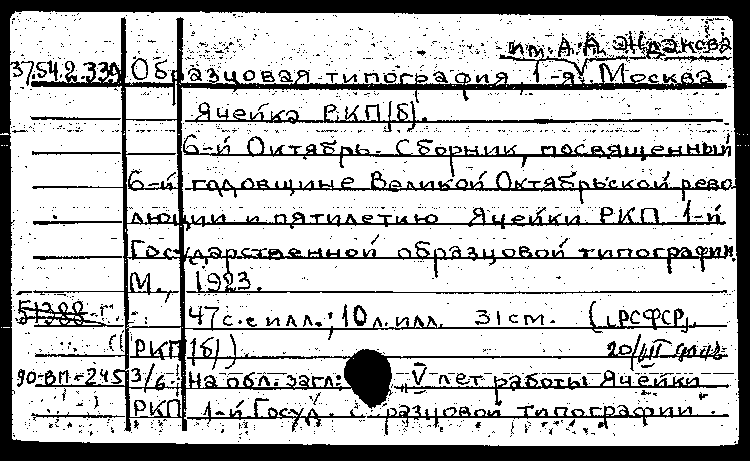 им. А. А. Жданова
Образцовая типография, 1-я. Москва
Ячейка РКП(б).
6-й Октябрь. Сборник, посвященный
6-й годовщине Великой Октябрьской рево
люции и пятилетию Ячейки РКП 1-й
Государственной образцовой типографии.
М., 1923.
51388-г.
47 с. с илл.; 10 л. илл. 31 см. (РСФСР.
РКП(б))
90-ВП-245 3/б. На обл. загл: „V лет работы Ячейки
РКП 1-й Госуд. Образцовой типографии".